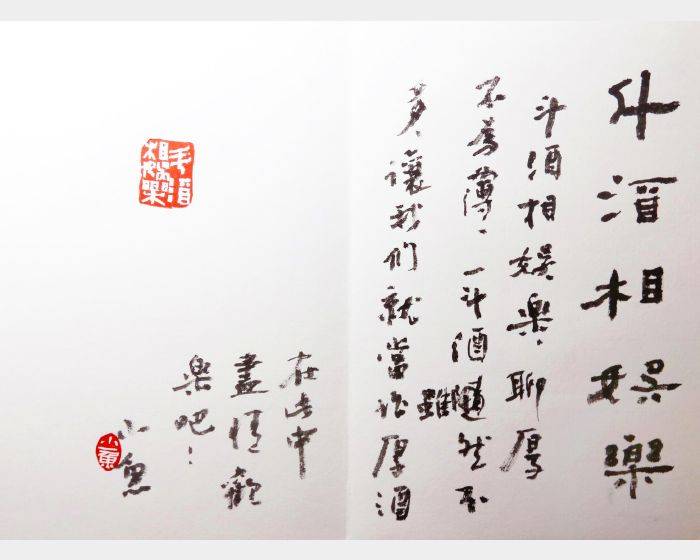 斗酒相娛樂
斗酒相娛樂,聊厚
不為薄、一斗酒雖然不
多,讓我們就當作厚酒
在此中
盡情歡
樂吧!
小魚
小魚
斗酒
相娛樂